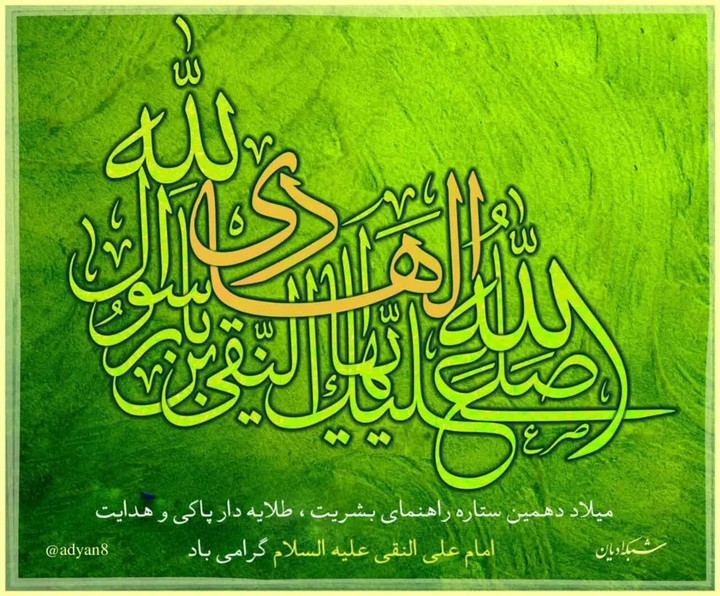 صلی الله علیک ایها الهادی النقی یابن رسول الله
میلاد دهمین ستاره راهنمای بشریت ، طلایه دار پاکی و هدایت
امام علی النقی علیه السلام گرامی باد
شبکه ادیان
@adyan8